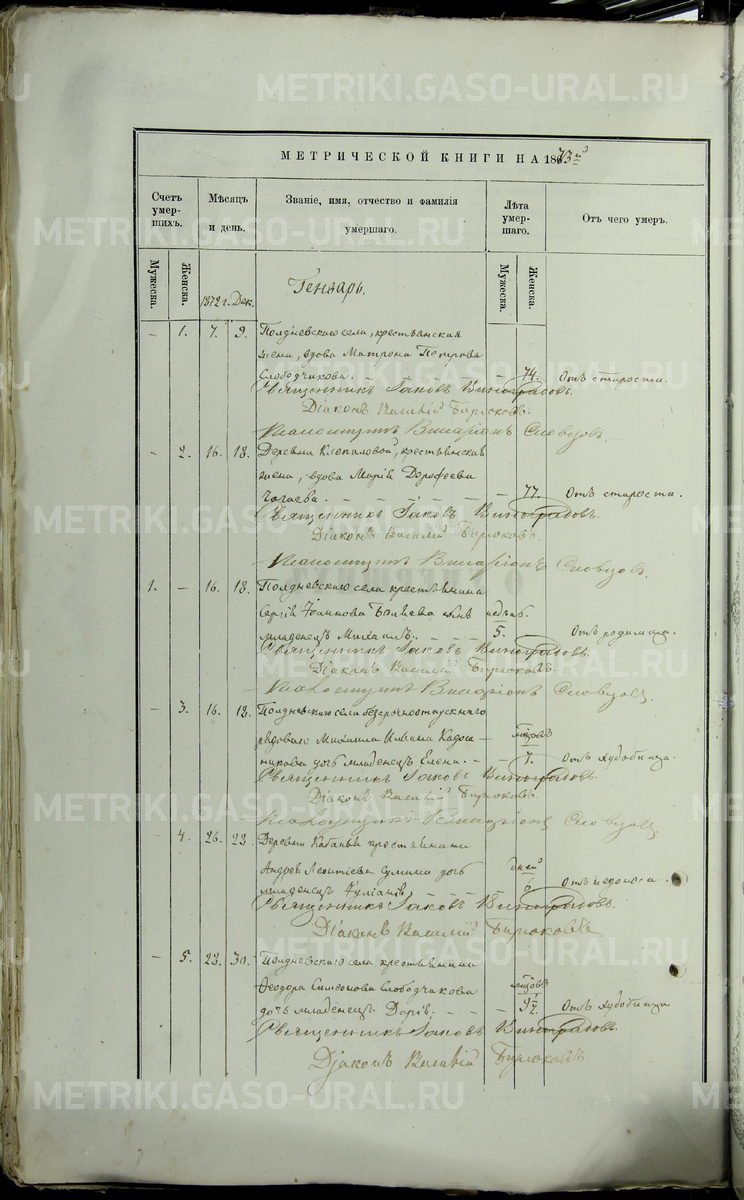 METRIKI.GASO-URAL.RU
МЕТРИЧЕСКОЙ КНИГИ НА 1873й
Счетъ умер-шихъ.
Мѣсяцъ и день.
Званіе, имя, отчество и фамилія умершаго.
Лѣта умер-шаго.
Отъ чего умеръ.
Мужеска. Женска.
1872 г. Дек.
Генварь.
Мужеска. Женска.
– 1. 7. 9. Полдневскаго села, крестьянская
жена, вдова Матрона Петрова
Слободчикова. 74. Отъ старости.
Священникъ Іаковъ Виноградовъ.
Діаконъ Василій Бирюковъ.
Виссаріонъ Словцовъ.
– 2. 16. 18. Деревни крестьянская
жена, вдова Марія Дорофеева
77. Отъ старости.
Священникъ Іаковъ Виноградовъ.
Діаконъ Василій Бирюковъ.
Виссаріонъ Словцовъ.
1. – 16. 18. Полдневскаго села крестьянина
Сергія сынъ недѣл.
младенецъ Михаилъ. 5. Отъ родимца.
Священникъ Іаковъ Виноградовъ.
Діаконъ Василій Бирюковъ.
Виссаріонъ Словцовъ.
– 3. 16. 18. Полдневскаго села безсрочноотпускнаго
рядоваго Михаила Ильина
дочь младенецъ Елена. 7. Отъ худобища.
Священникъ Іаковъ Виноградовъ.
Діаконъ Василій Бирюковъ.
Виссаріонъ Словцовъ.
4. 26. 28. Деревни крестьянина
Андрея Леонтіева дочь дней
младенецъ Іуліанія. 6 Отъ недоноса.
Священникъ Іаковъ Виноградовъ.
Діаконъ Василій Бирюковъ.
– 5. 28. 30. Полдневскаго села крестьянина
Ѳеодора Симеонова Слободчикова
дочь младенецъ Дарія. 9½ Отъ худобища.
Священникъ Іаковъ Виноградовъ.
Діаконъ Василій Бирюковъ.